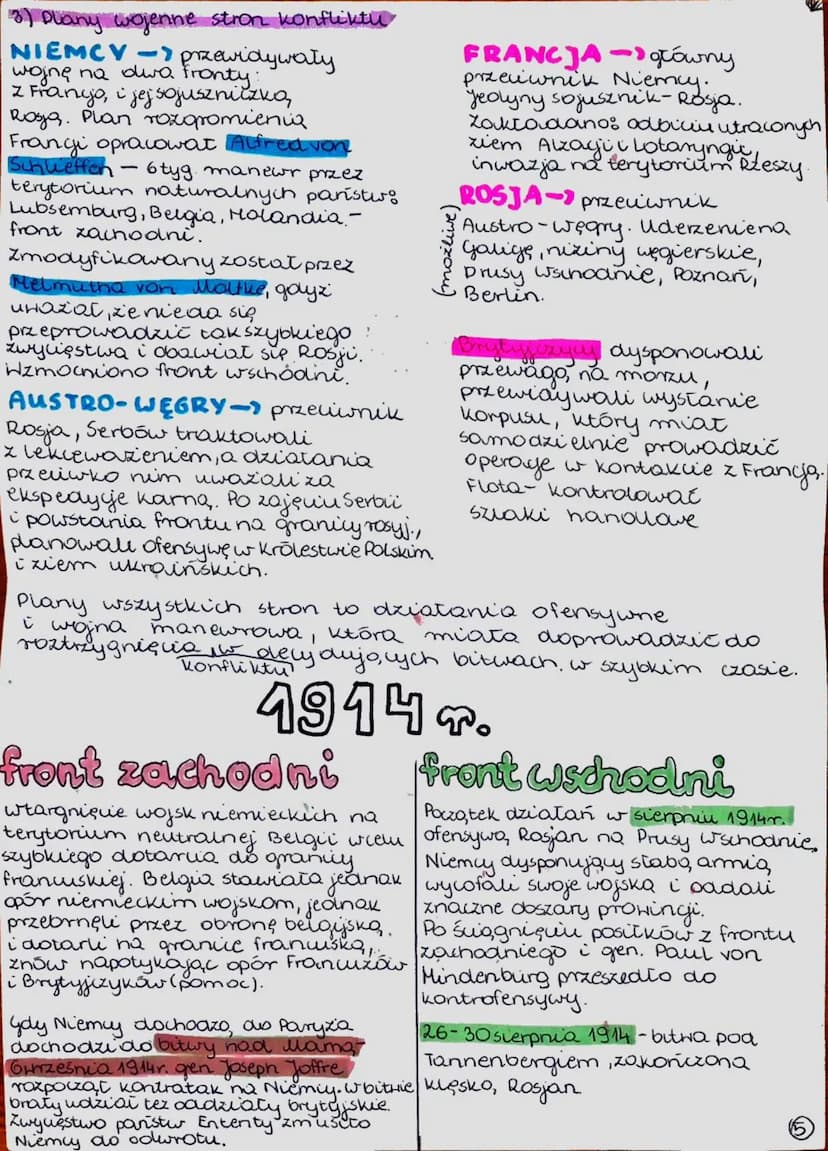 3) Plany wojenne stron konfliktu
NIEMCY → przewidywały
wojnę na dwa fronty:
z Francją i jej sojuszniczką
Rosją. Plan rozgromienia
Francji opracował Alfred von
Schlieffen – 6 tyg. manewr przez
terytorium naturalnych państw:
Luksemburg, Belgia, Holandia. –
front zachodni.
Zmodyfikowany został przez
Helmutha von Moltke, gdyż
uważał, że nie da się
przeprowadzić tak szybkiego
zwycięstwa i obawiał się Rosji.
Wzmocniono front wschodni.
AUSTRO-WĘGRY → przeciwnik
Rosja, Serbów traktowali
z lekceważeniem, a działania
przeciwko nim uważali za
ekspedycję karną. Po zajęciu Serbii
i powstania frontu na granicy rosyj.,
planowali ofensywę w Królestwie Polskim
i ziem ukraińskich.
FRANCJA → główny
przeciwnik Niemcy.
Jedyny sojusznik – Rosja.
Zakładano: odbiciu utraconych
ziem Alzacji i Lotaryngii,
inwazja na terytorium Rzeszy.
ROSJA → przeciwnik
Austro-Węgry. Uderzenie na
(możliwe)
Galicję, niziny węgierskie,
Prusy Wschodnie, Poznań,
Berlin.
Brytyjczycy dysponowali
przewagą na morzu,
przewidywali wysłanie
korpusu, który miał
samodzielnie prowadzić
operacje w kontakcie z Francją.
Flota – kontrolować
szlaki handlowe
Plany wszystkich stron to działania ofensywne
i wojna manewrowa, która miała doprowadzić do
roztrzygnięcia w decydujących bitwach. w szybkim czasie.
konfliktu
1914 r.
front zachodni
Wtargnięcie wojsk niemieckich na
terytorium neutralnej Belgii w celu
szybkiego dotarcia do granicy
francuskiej. Belgia stawiała jednak
opór niemieckim wojskom, jednak
przebrnęli przez obronę belgijską.
i dotarli na granice francuską,
znów napotykając opór Francuzów
i Brytyjczyków (pomoc).
Gdy Niemcy dochodzą do Paryża
dochodzi do bitwy nad Marną –
6 września 1914r. gen Joseph Joffre
rozpoczął kontratak na Niemcy. W bitwie
brały udział też oddziały brytyjskie.
Zwycięstwo państw Ententy zmusiło
Niemcy do odwrotu.
front wschodni
Początek działań w sierpniu 1914r.
ofensywą Rosjan na Prusy Wschodnie.
Niemcy dysponujący słabą armią
wycofali swoje wojska i oddali
znaczne obszary prowincji.
Po ściągnięciu posiłków z frontu
zachodniego i gen. Paul von
Hindenburg przeszedło do
kontrofensywy.
26-30 sierpnia 1914 – bitwa pod
Tannenbergiem, zakończona
klęską Rosjan
5